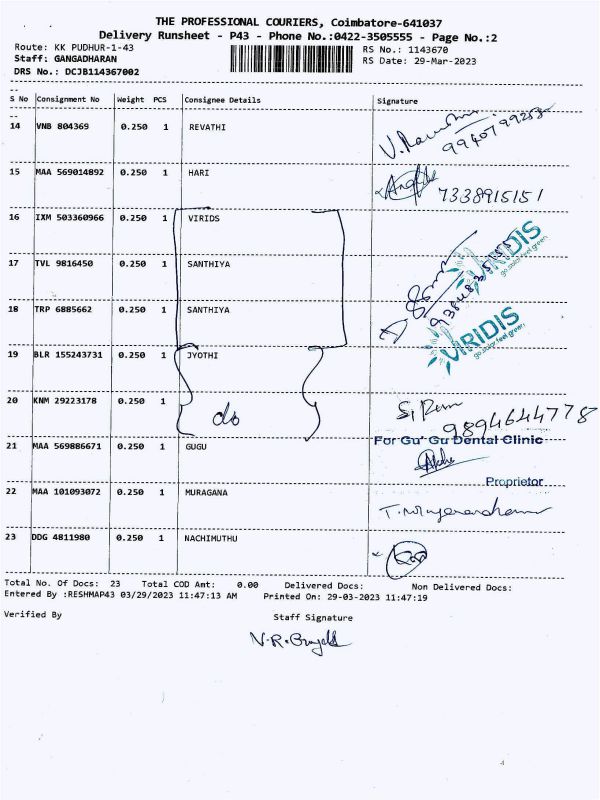 THE PROFESSIONAL COURIERS, Coimbatore-641037
Delivery Runsheet - P43 - Phone No.:0422-3505555 - Page No.:2
Route: KK PUDHUR-1-43 RS No.: 1143670
Staff: GANGADHARAN RS Date: 29-Mar-2023
DRS No.: DCJB114367002
S No Consignment No Weight PCS Consignee Details Signature
14 VNB 804369 0.250 1 REVATHI
15 MAA 569014892 0.250 1 HARI 7338915151
16 IXM 503360966 0.250 1 VIRIDS
VIRIDIS
go solar feel green
17 TVL 9816450 0.250 1 SANTHIYA
18 TRP 6885662 0.250 1 SANTHIYA
VIRIDIS
go solar feel green
19 BLR 155243731 0.250 1 JYOTHI
20 KNM 29223178 0.250 1 do
9894644778
For Gu' Gu Dental Clinic
21 MAA 569886671 0.250 1 GUGU
Proprietor
22 MAA 101093072 0.250 1 MURAGANA
23 DDG 4811980 0.250 1 NACHIMUTHU
Total No. Of Docs: 23 Total COD Amt: 0.00 Delivered Docs: Non Delivered Docs:
Entered By :RESHMAP43 03/29/2023 11:47:13 AM Printed On: 29-03-2023 11:47:19
Verified By Staff Signature